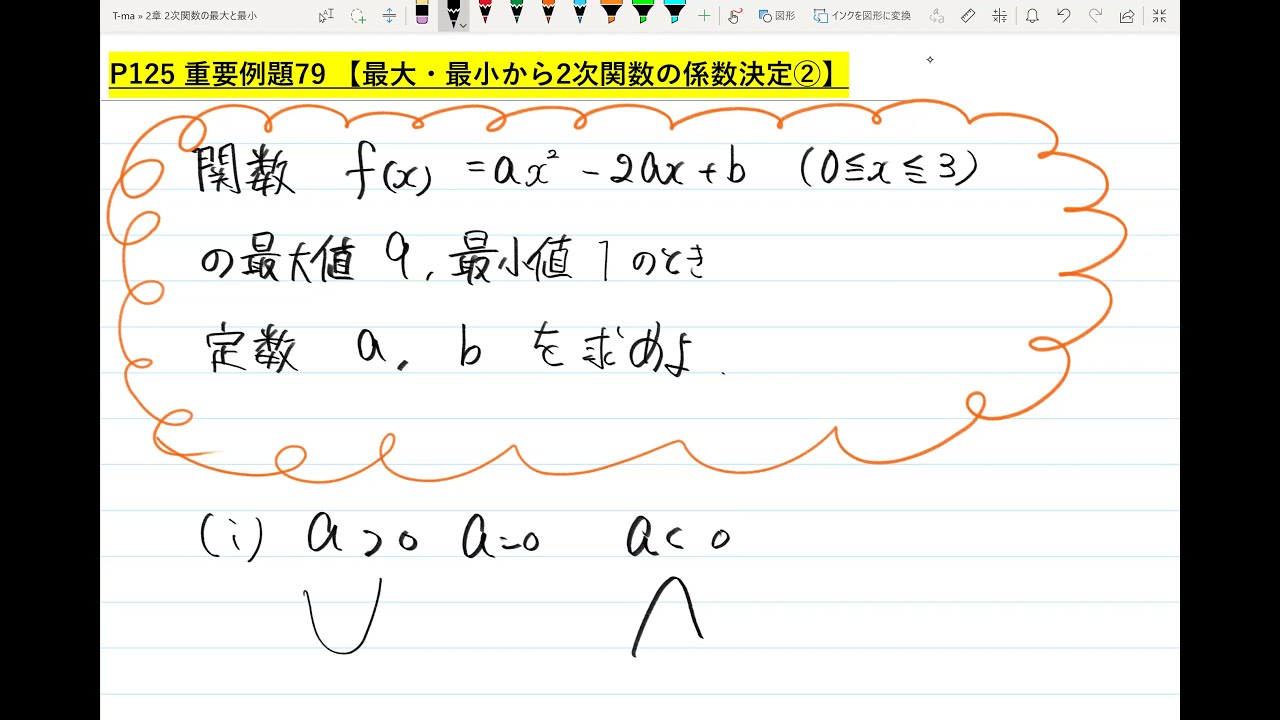 T-ma » 2章 2次関数の最大と最小
図形
インクを図形に変換
P125 重要例題79 【最大・最小から2次関数の係数決定②】
関数 f(x) = ax² - 2ax + b (0 ≦ x ≦ 3)
の最大値 9, 最小値 1 のとき
定数 a, b を求めよ.
(i) a > 0 a = 0 a < 0